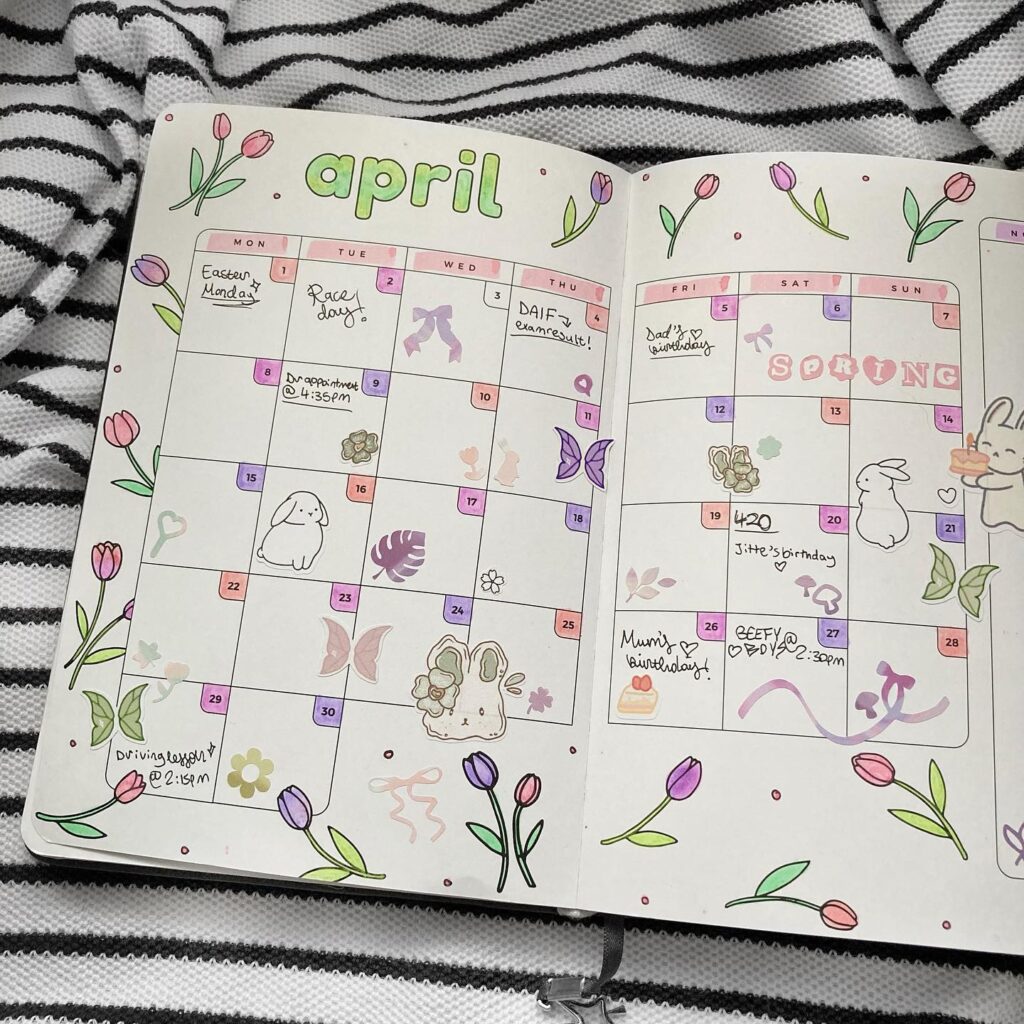 april
MON TUE WED THU FRI SAT SUN N
1 2 3 4 5 6 7
Easter
Monday
Race
day!
DAIF
exam result!
Dad's
birthday
SPRING
8 9 10 11 12 13 14
Dr appointment
@ 4:35pm
15 16 17 18 19 20 21
420
Jitte's birthday
22 23 24 25 26 27 28
Mum's
birthday!
BEEFY @
BOYS 2:30pm
29 30
Driving lesson
@ 2:15pm